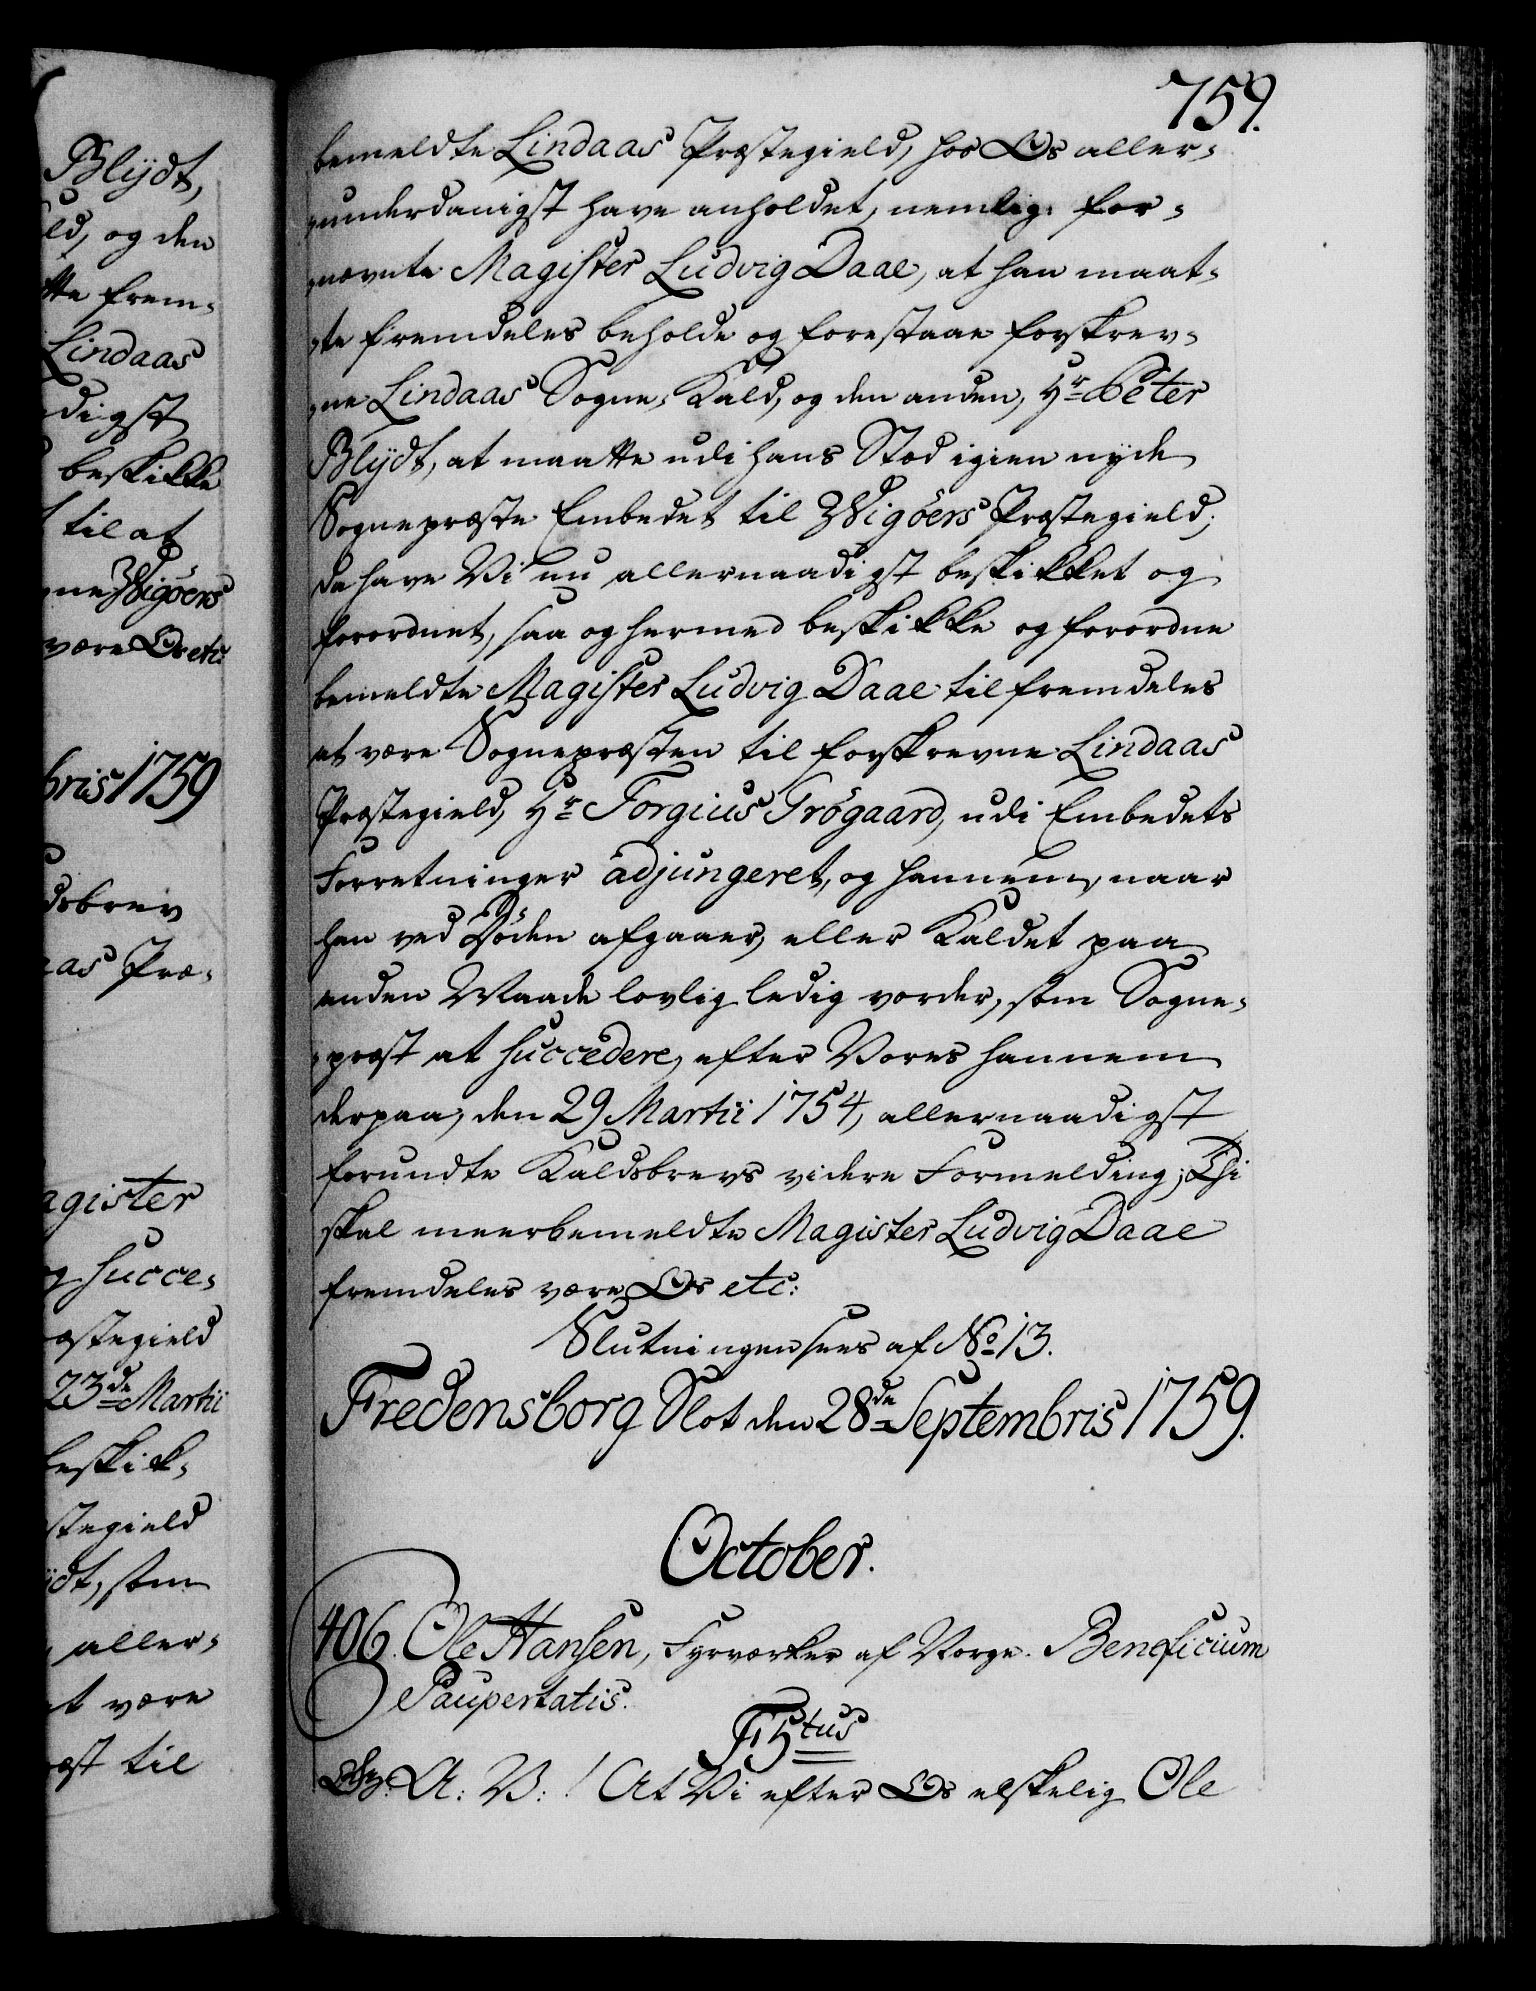 759.
bemeldte Lindaas Præstegield, hos Os aller-
-underdanigst have anholdet, nemlig: for-
-nævnte Magister Ludvig Daae, at han maat-
-te fremdeles beholde og forestaae forskrev-
-ne Lindaas Sogne-Kald, og den anden, Hr Peter
Blÿdt, at maatte udi hans Stæd igien nyde
Sognepræste Embedet til Wigöers Præstegield;
da have Vi nu allernaadigst beskikket og
forordnet, saa og hermed beskikke og forordne
bemeldte Magister Ludvig Daae til fremdeles
at være Sognepræsten til forskrevne Lindaas
Præstegield, Hr Torgius Trögaard, udi Embedets
Forretninger adjungeret, og hannem, naar
han ved Döden afgaaer, eller Kaldet paa
anden Maade lovlig ledig vorder, som Sogne-
-præst at succedere, efter Vores hannem
derpaa, den 29 Martii 1754, allernaadigst
forundte Kaldsbrevs videre Formelding; Thi
skal meerbemeldte Magister Ludvig Daae
fremdeles være Os etc:
Slutningen sees af No 13.
Fredensborg Slot den 28de Septembris 1759.
October.
406. Ole Hansen, Fyrværker af Norge. Beneficium
Paupertatis.
F 5tus
A: V: ! At Vi efter Os elskelig Ole
Blÿdt,
ld, og den
tte frem-
Lindaas
digst
beskikke
til at
ne Wigöers
være Os etc:
bris 1759
dsbrev
aas Præ-
agister
og succe-
æstegield
23de Martii
beskik-
stegield
ÿdt, som
aller-
at være
æst til